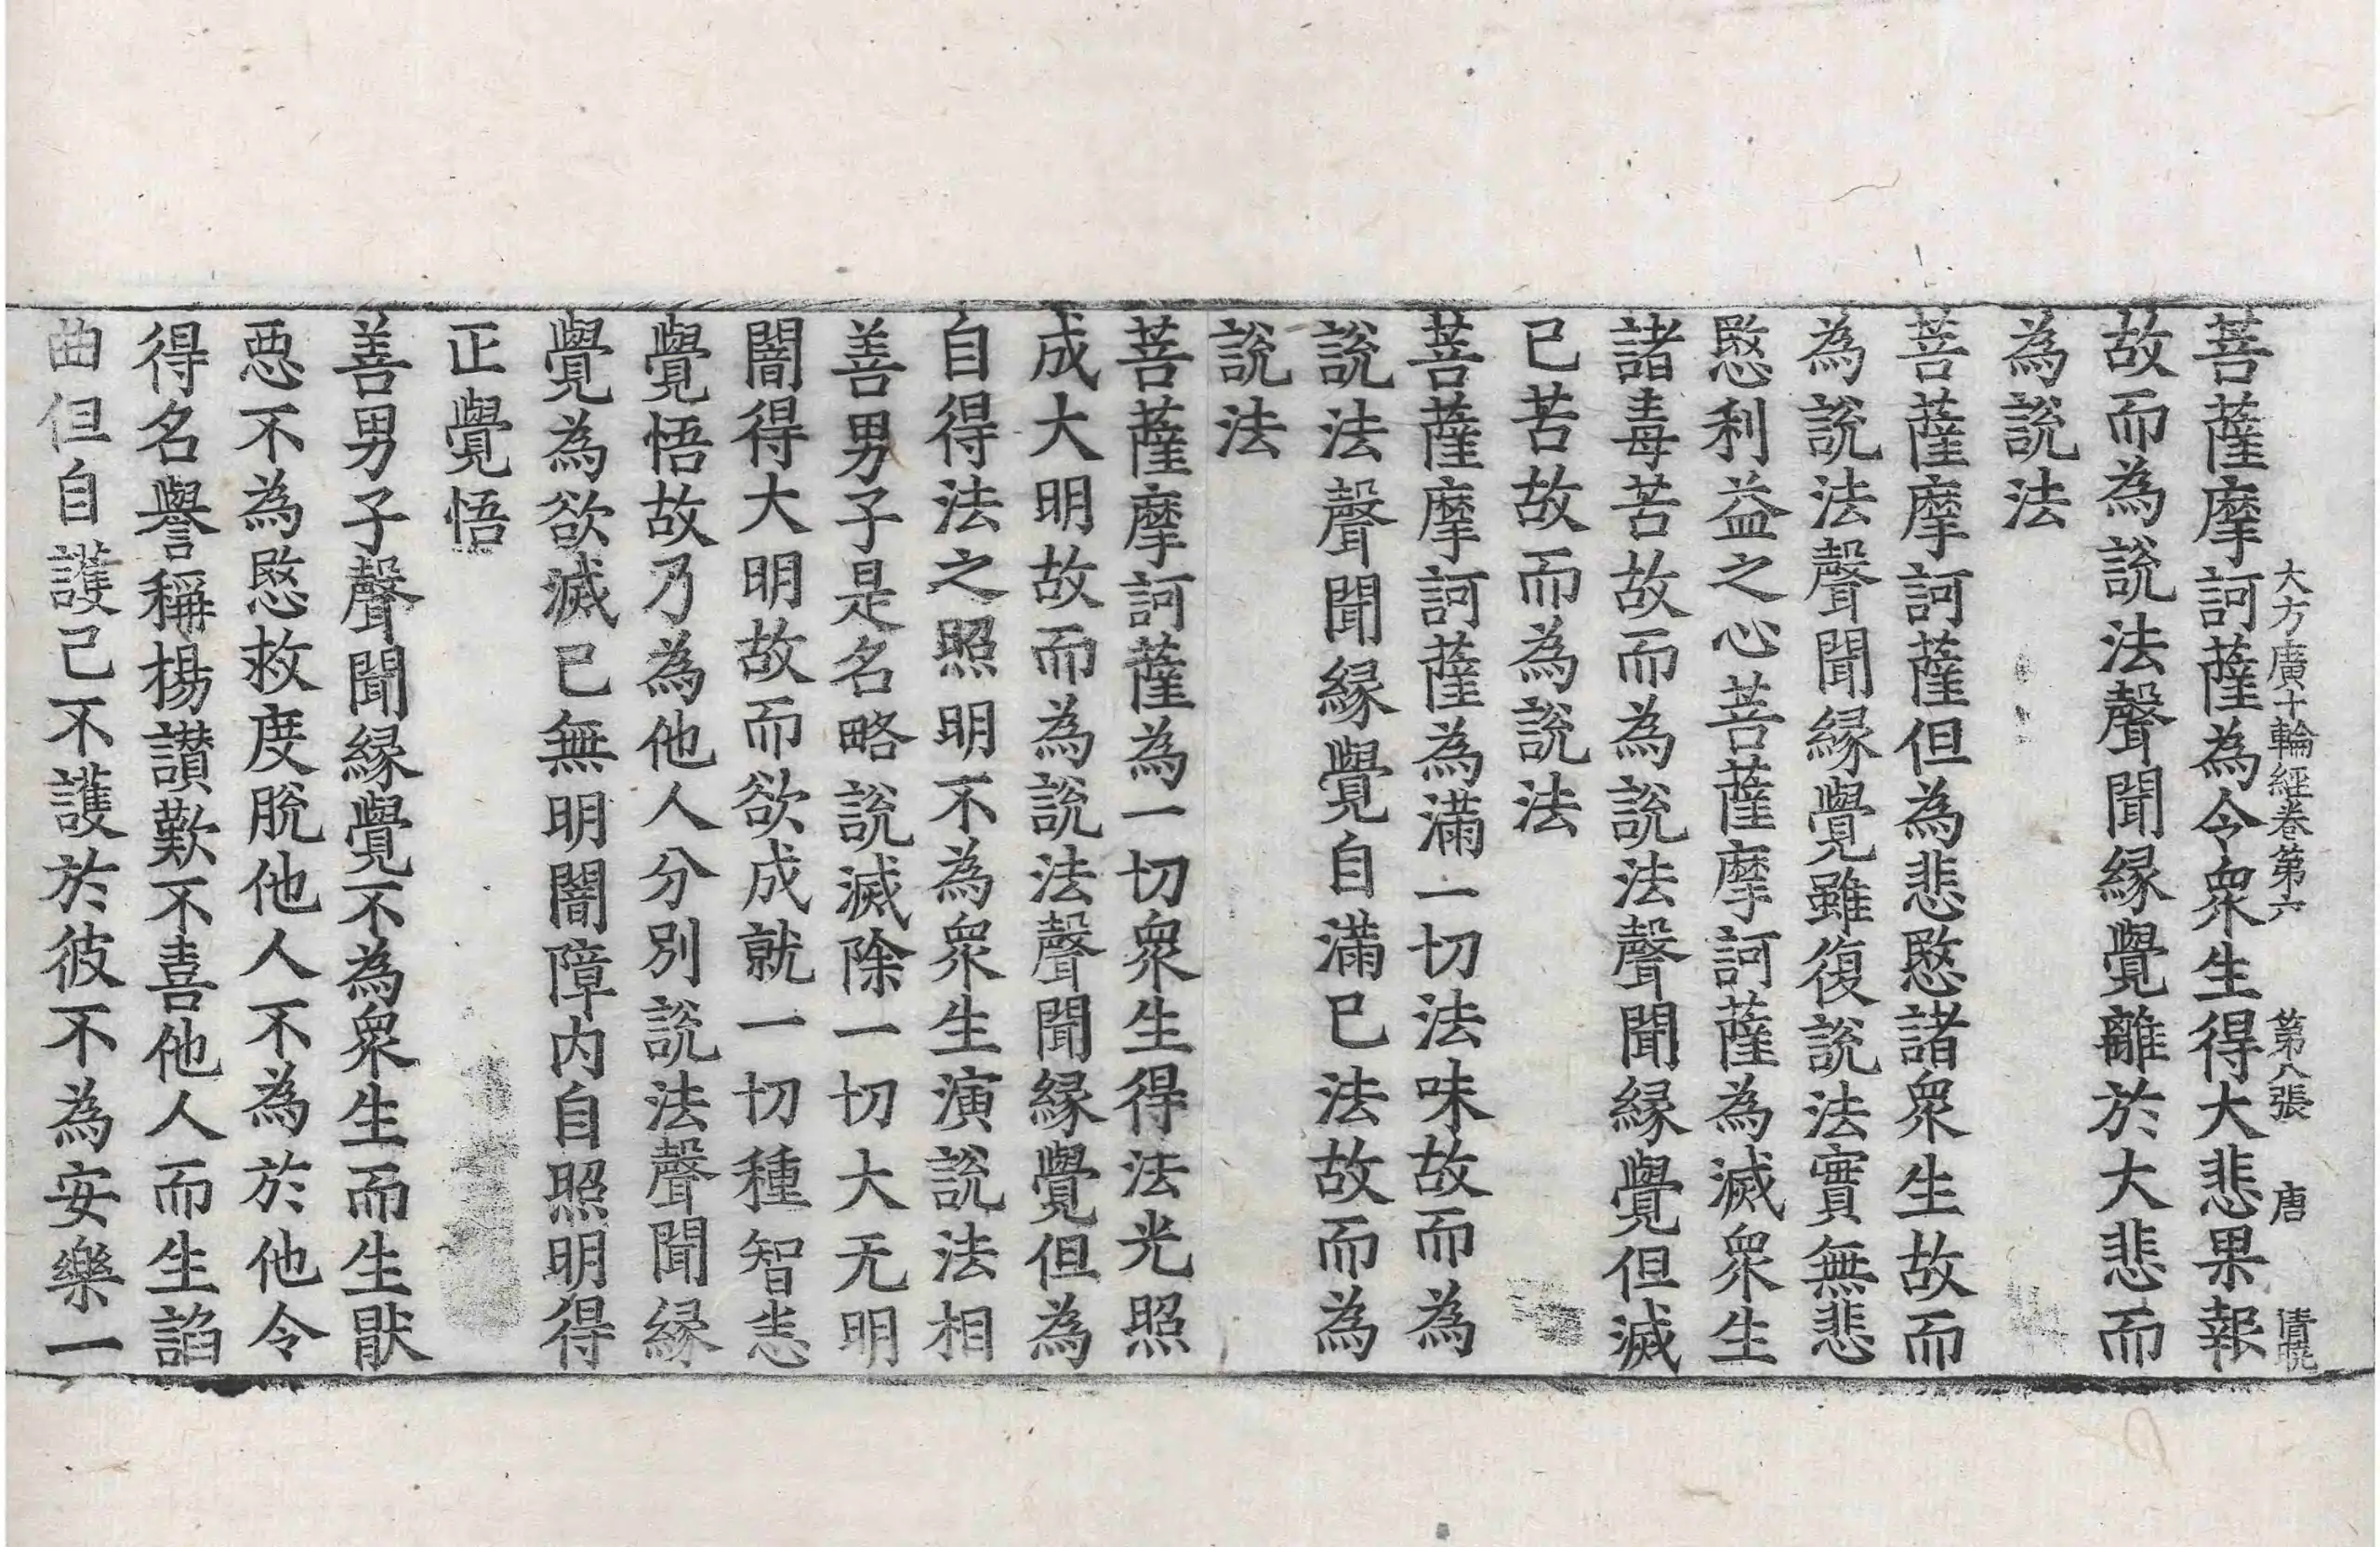 大方廣十輪經卷第六　第八張　唐
菩薩摩訶薩為令衆生得大悲果報
故而為說法聲聞緣覺離於大悲而
為說法
菩薩摩訶薩但為悲愍諸衆生故而
為說法聲聞緣覺雖復說法實無悲
愍利益之心菩薩摩訶薩為滅衆生
諸毒苦故而為說法聲聞緣覺但滅
已苦故而為說法
菩薩摩訶薩為滿一切法味故而為
說法聲聞緣覺自滿已法故而為
說法
菩薩摩訶薩為一切衆生得法光照
成大明故而為說法聲聞緣覺但為
自得法之照明不為衆生演說法相
善男子是名略說滅除一切大无明
闇得大明故而欲成就一切種智恚
覺悟故乃為他人分別說法聲聞緣
覺為欲滅已無明闇障内自照明得
正覺悟
善男子聲聞緣覺不為衆生而生猒
惡不為愍救度脫他人不為於他令
得名譽稱揚讃歎不喜他人而生諂
曲但自護己不護於彼不為安樂一